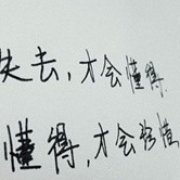 失去，才会懂得，
懂得，才会珍值